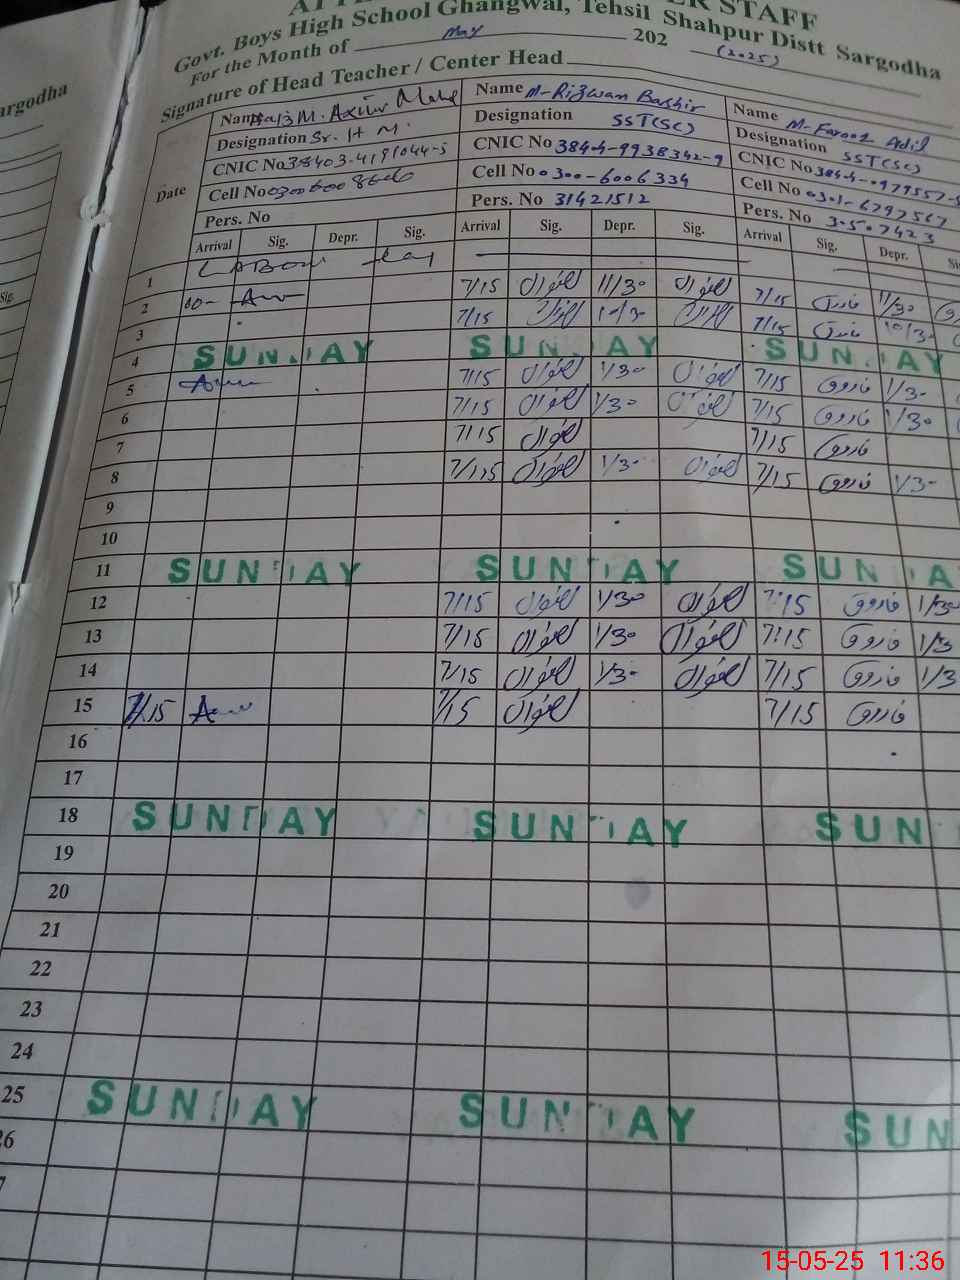 STAFF
Govt. Boys High School Ghangwal, Tehsil Shahpur Distt Sargodha
For the Month of May 202 (2025)
Signature of Head Teacher / Center Head
argodha
Sig.
Date
Name M. Azhar
Designation Sr. H M.
CNIC No 38403-4191044-5
Cell No
Pers. No
Arrival Sig. Depr. Sig.
Name M-Rizwan Bashir
Designation SST(SC)
CNIC No 38404-9938342-9
Cell No 0300-6006334
Pers. No 31421512
Arrival Sig. Depr. Sig.
Name M-Farooq Adil
Designation SST(SC)
CNIC No 38404-0979557-
Cell No 0301-6797567
Pers. No 30507423
Arrival Sig. Depr.
1 LABOUR Day
2 7/15 11/30 7/15 فاروق 11/30
3 7/15 10/30 7/15 فاروق 10/30
4 SUNDAY SUNDAY SUNDAY
5 7/15 1/30 7/15 فاروق 1/30
6 7/15 1/30 7/15 فاروق 1/30
7 7/15 7/15 فاروق
8 7/15 1/30 7/15 فاروق 1/30
9
10
11 SUNDAY SUNDAY SUNDA
12 7/15 1/30 7/15 فاروق 1/30
13 7/15 1/30 7/15 فاروق 1/3
14 7/15 1/30 7/15 فاروق 1/3
15 7/15 7/15 7/15 فاروق
16
17
18 SUNDAY SUNDAY SUN
19
20
21
22
23
24
25 SUNDAY SUNDAY SUN
26
7
15-05-25 11:36